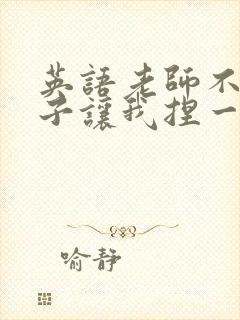 英語老師不
子讓我捏一
喻靜